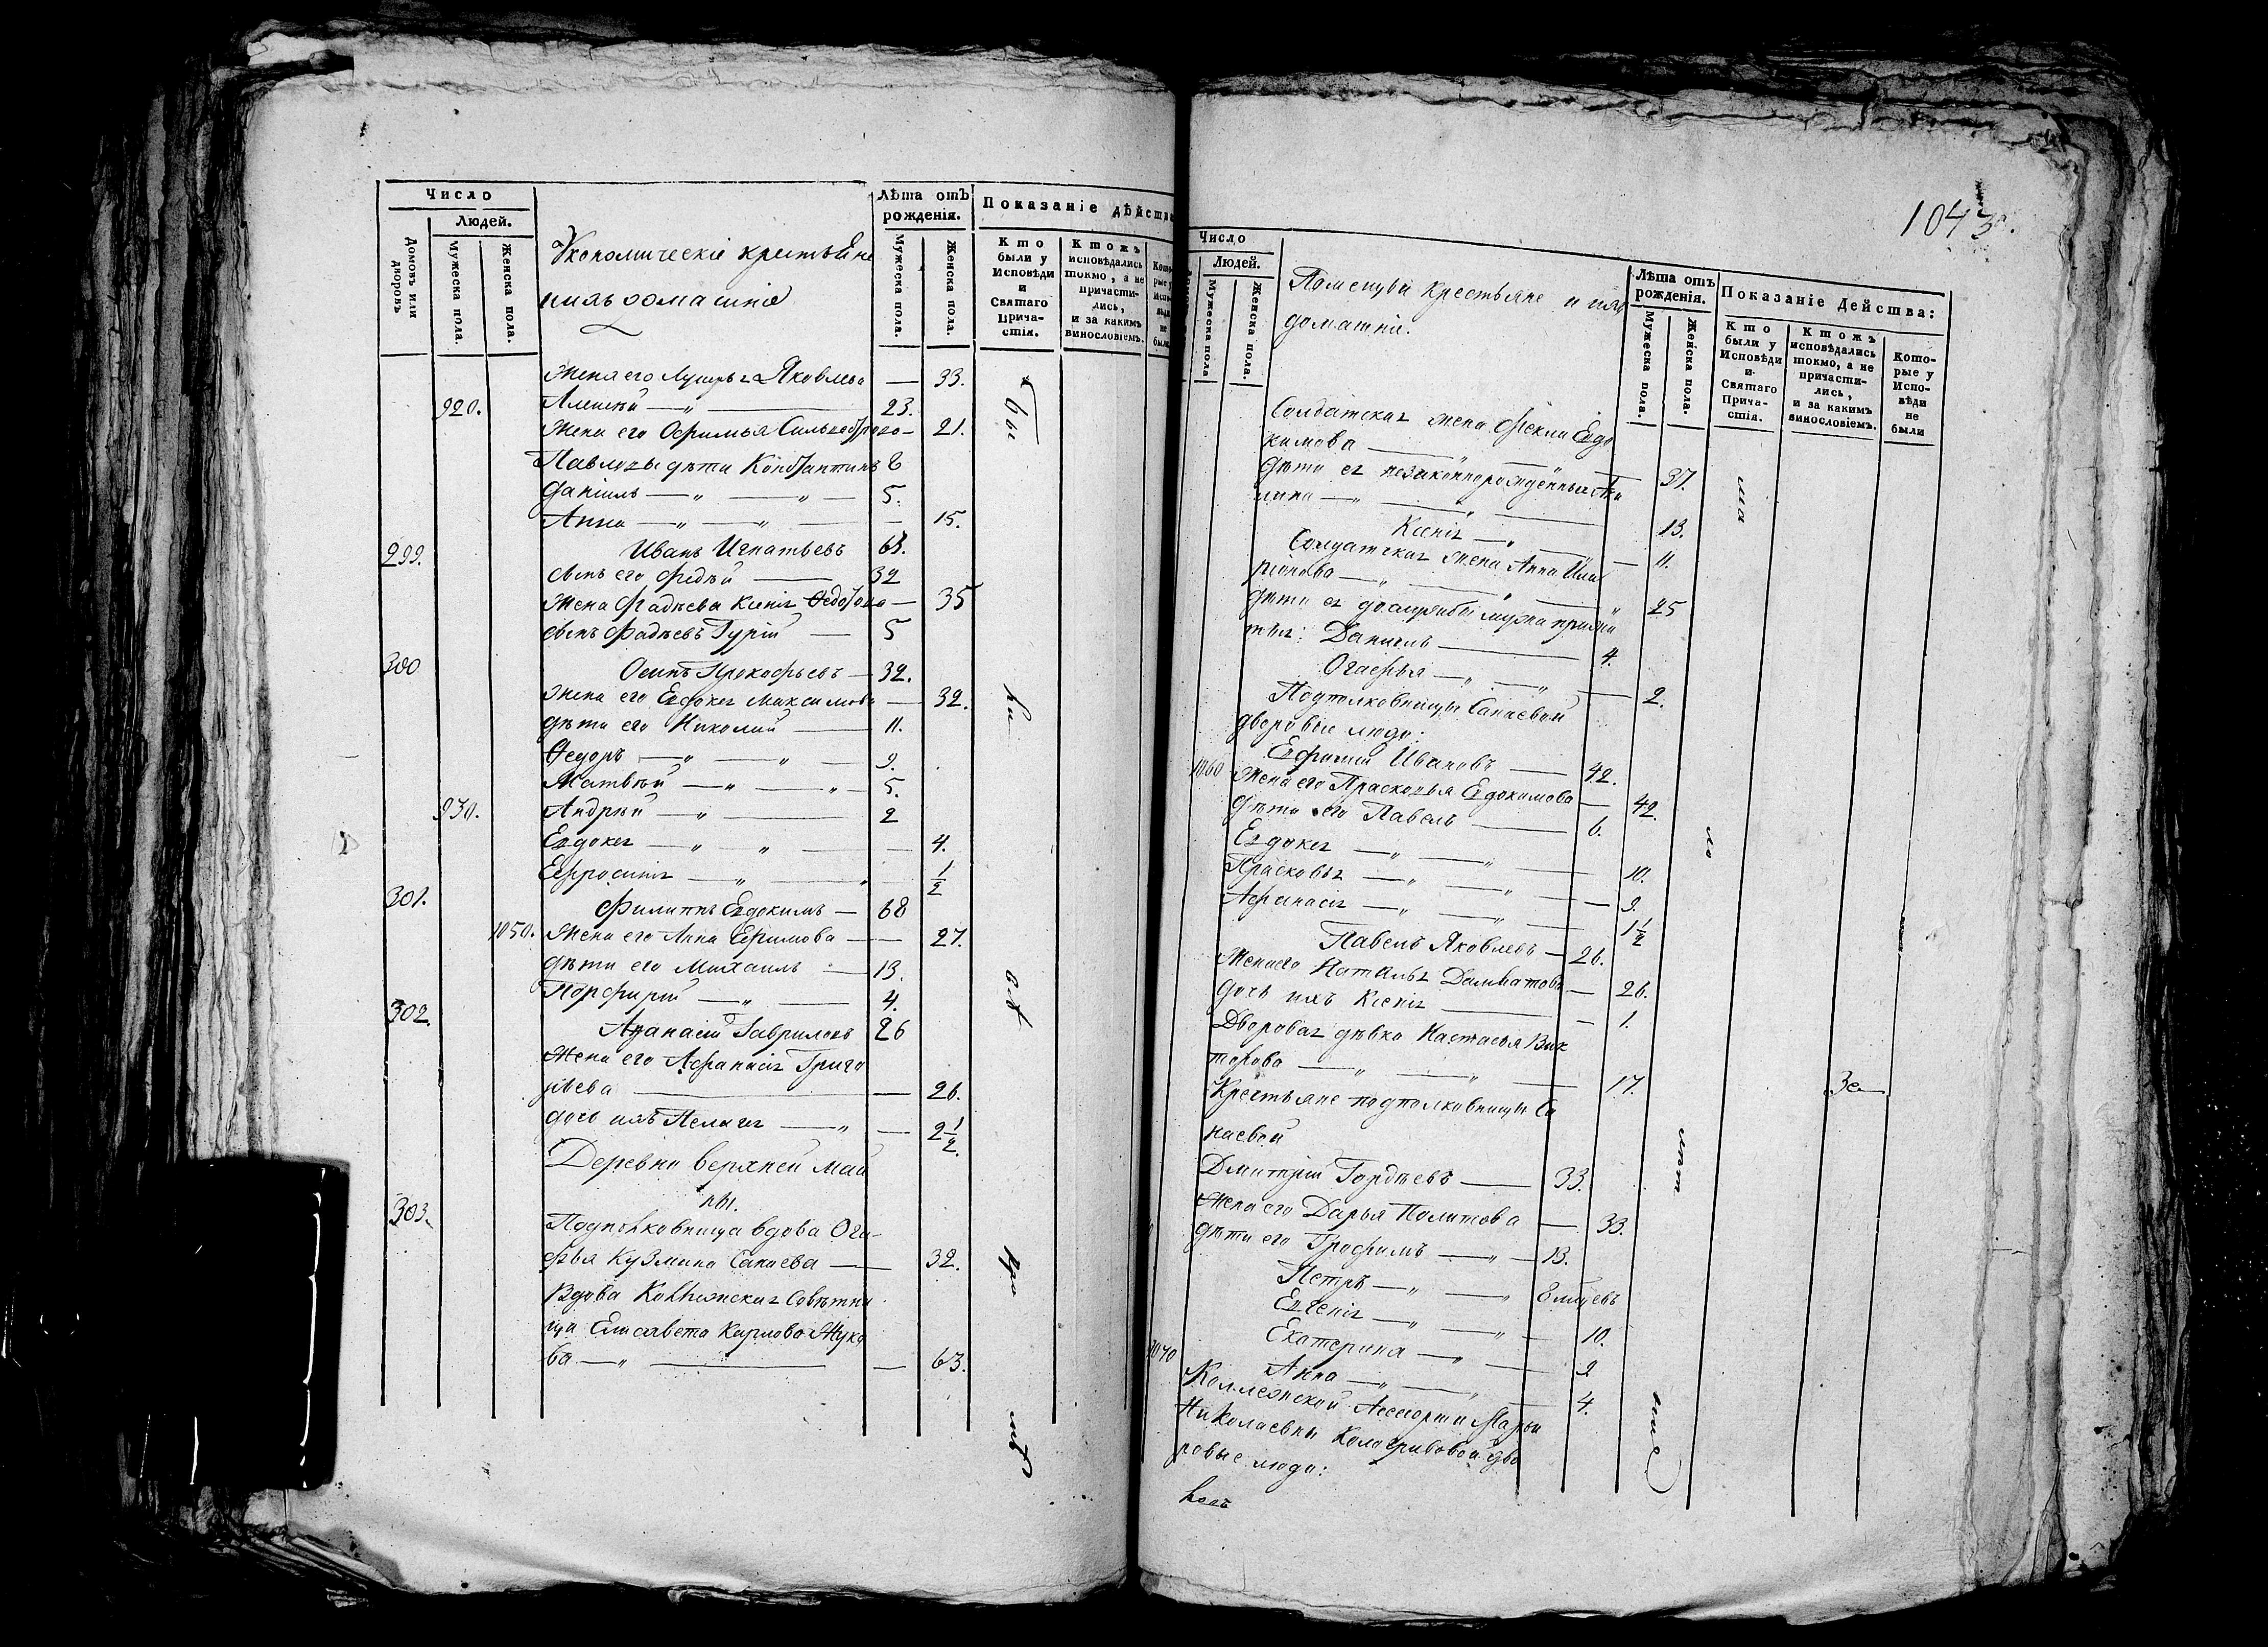 Число
Людей.
Домовъ или дворовъ
Мужеска пола.
Женска пола.
Экономическіе крестьяне
ихъ домашніе
Лѣта отъ рожденія.
Мужеска пола.
Женска пола.
Показаніе дѣйства
Кто были у Исповѣди и Святаго Причастія.
Ктожъ исповѣдались токмо, а не причастились, и за какимъ винословіемъ.
Жена его Лукерья Яковлева — 33.
920. Алексѣй —„— 23.
Жена его Ефимья — 21.
Павловы дѣти Константинъ 8
Даніилъ —„—„— 5.
Анна —„—„— 15.
299. Иванъ Игнатьевъ 63.
сынъ его Фадѣй — 32
Жена Фадѣева Ксенія Ѳедотова — 35
сынъ Фадѣевъ Гурій — 5
300 Осипъ Прокофьевъ — 32.
Жена его Евдокея Максимова — 32.
дѣти его Николай — 11.
Ѳедоръ —„—„— 9.
Матвѣй —„—„— 5.
930. Андрѣй —„— 2
Евдокея —„—„— 4.
Ефросинія —„—„ 1/2
301. Филиппъ Евдокимъ — 68
1050. Жена его Анна Ефимова — 27.
дѣти его Михаилъ — 13.
Порфирій —„— 4.
302. Афанасій Гавриловъ 26
Жена его Афанасія Григо
рьева — 26.
дочь ихъ Пелагея —„— 2 1/2.
Деревни верхней май
ны.
303. Подполковница вдова Ога-
фья Кузмина Сакаева — 32.
Вдова Коллежская Совѣтни
ца Елисавета Карлова Жуко
ва —„— 63.
бы
ли
всѣ
1043.
Число
Людей.
Мужеска пола
Женска пола.
Помещьи крестьяне и ихъ
домашніе.
Лѣта отъ рожденія.
Мужеска пола.
Женска пола.
Показаніе Действа:
Кто были у Исповѣди и Святаго Причастія.
Ктожъ исповѣдались токмо, а не причастились, и за какимъ винословіемъ.
Которые у Исповѣди не были
Солдатская жена Фекла Евдо
кимова — 37.
дѣти ея незаконнорожденныя Аку
лина —„—„— 13.
Ксенія —„— 11.
Солдатская жена Анна Ила
ріонова —„—„ 25
дѣти ея до службы мужа прижи
тыя: Даниилъ — 4.
Огафья —„—„— 2.
Подполковницы Сакаевой
дворовые люди:
Ефимій Ивановъ — 42.
1060 Жена его Прасковья Евдокимова — 42.
дѣти его Павелъ — 6.
Евдокея —„—„— 10.
Прасковья —„—„— 9.
Афанасія —„—„— 1 1/2
Павелъ Яковлевъ — 26.
Жена его Наталья Далматова — 26.
дочь ихъ Ксенія — 1.
Дворовая дѣвка Настасья Вик
торова —„—„— 17.
Крестьяне подполковницы Са
каевой
Дмитрій Гордѣевъ — 33.
Жена его Дарья Политова — 33.
дѣти его Трофимъ —„— 13.
Петръ —„—„ 8 мцовъ
Евгенія —„—„— 10.
Екатерина —„— 9
1070 Анна —„—„— 4.
Коллежской Асессорши Марьи
Николаевны Кологривовой дво
ровые люди: